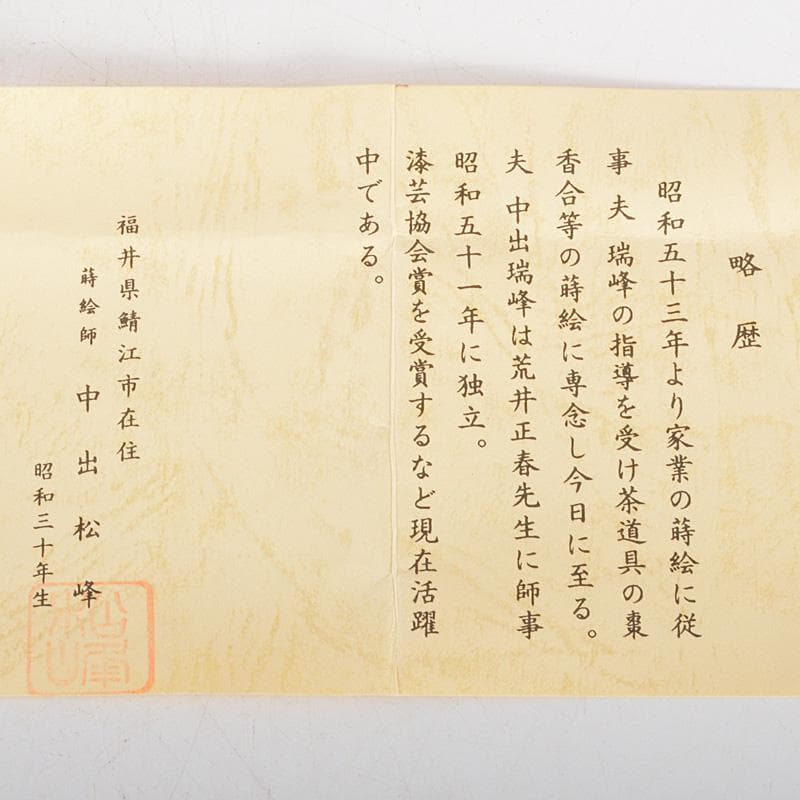 略歴
昭和五十三年より家業の蒔絵に従
事 夫 瑞峰の指導を受け茶道具の棗
香合等の蒔絵に専念し今日に至る。
夫 中出瑞峰は荒井正春先生に師事
昭和五十一年に独立。
漆芸協会賞を受賞するなど現在活躍
中である。
福井県鯖江市在住
蒔絵師 中出松峰
昭和三十年生
松峰